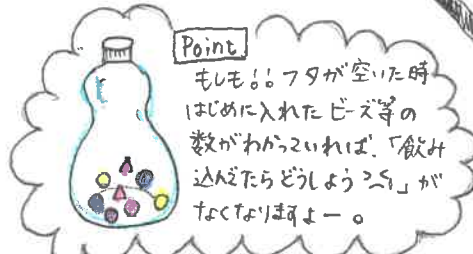 Point
もしも!!フタが空いた時
はじめに入れたビーズ等の
数がわかっていれば、「飲み
込んでたらどうしよう」が
なくなりますよー。